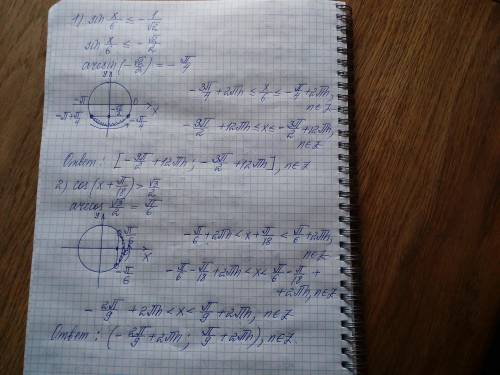 1) sin x/6 ≤ - 1/√2
sin x/6 ≤ - √2/2
arcsin(-√2/2) = - π/4
y
-π
-π/2
0
x
-π+π/4
-π/4
- 3π/4 + 2πn ≤ x/6 ≤ - π/4 + 2πn,
n∈Z
- 9π/2 + 12πn ≤ x ≤ - 3π/2 + 12πn,
n∈Z
Ответ: [- 9π/2 + 12πn; - 3π/2 + 12πn], n∈Z
2) cos(x + π/18) > √3/2
arccos √3/2 = π/6
y
π/6
x
-π/6
- π/6 + 2πn < x + π/18 < π/6 + 2πn,
n∈Z
- π/6 - π/18 + 2πn < x < π/6 - π/18 +
+ 2πn, n∈Z
- 2π/9 + 2πn < x < π/9 + 2πn, n∈Z
Ответ: (- 2π/9 + 2πn; π/9 + 2πn), n∈Z.